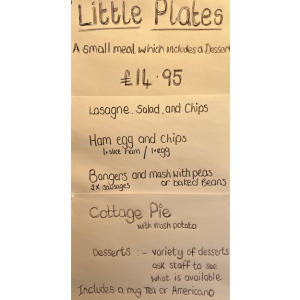 Little Plates
A small meal which includes a Dessert
£14.95
Lasagne, Salad, and Chips
Ham egg and chips
1x slice ham / 1x egg
Bangers and mash with peas
2x sausages or baked beans
Cottage Pie
with mash potato
Desserts :- variety of desserts
ask staff to see
what is available
Includes a mug Tea or Americano